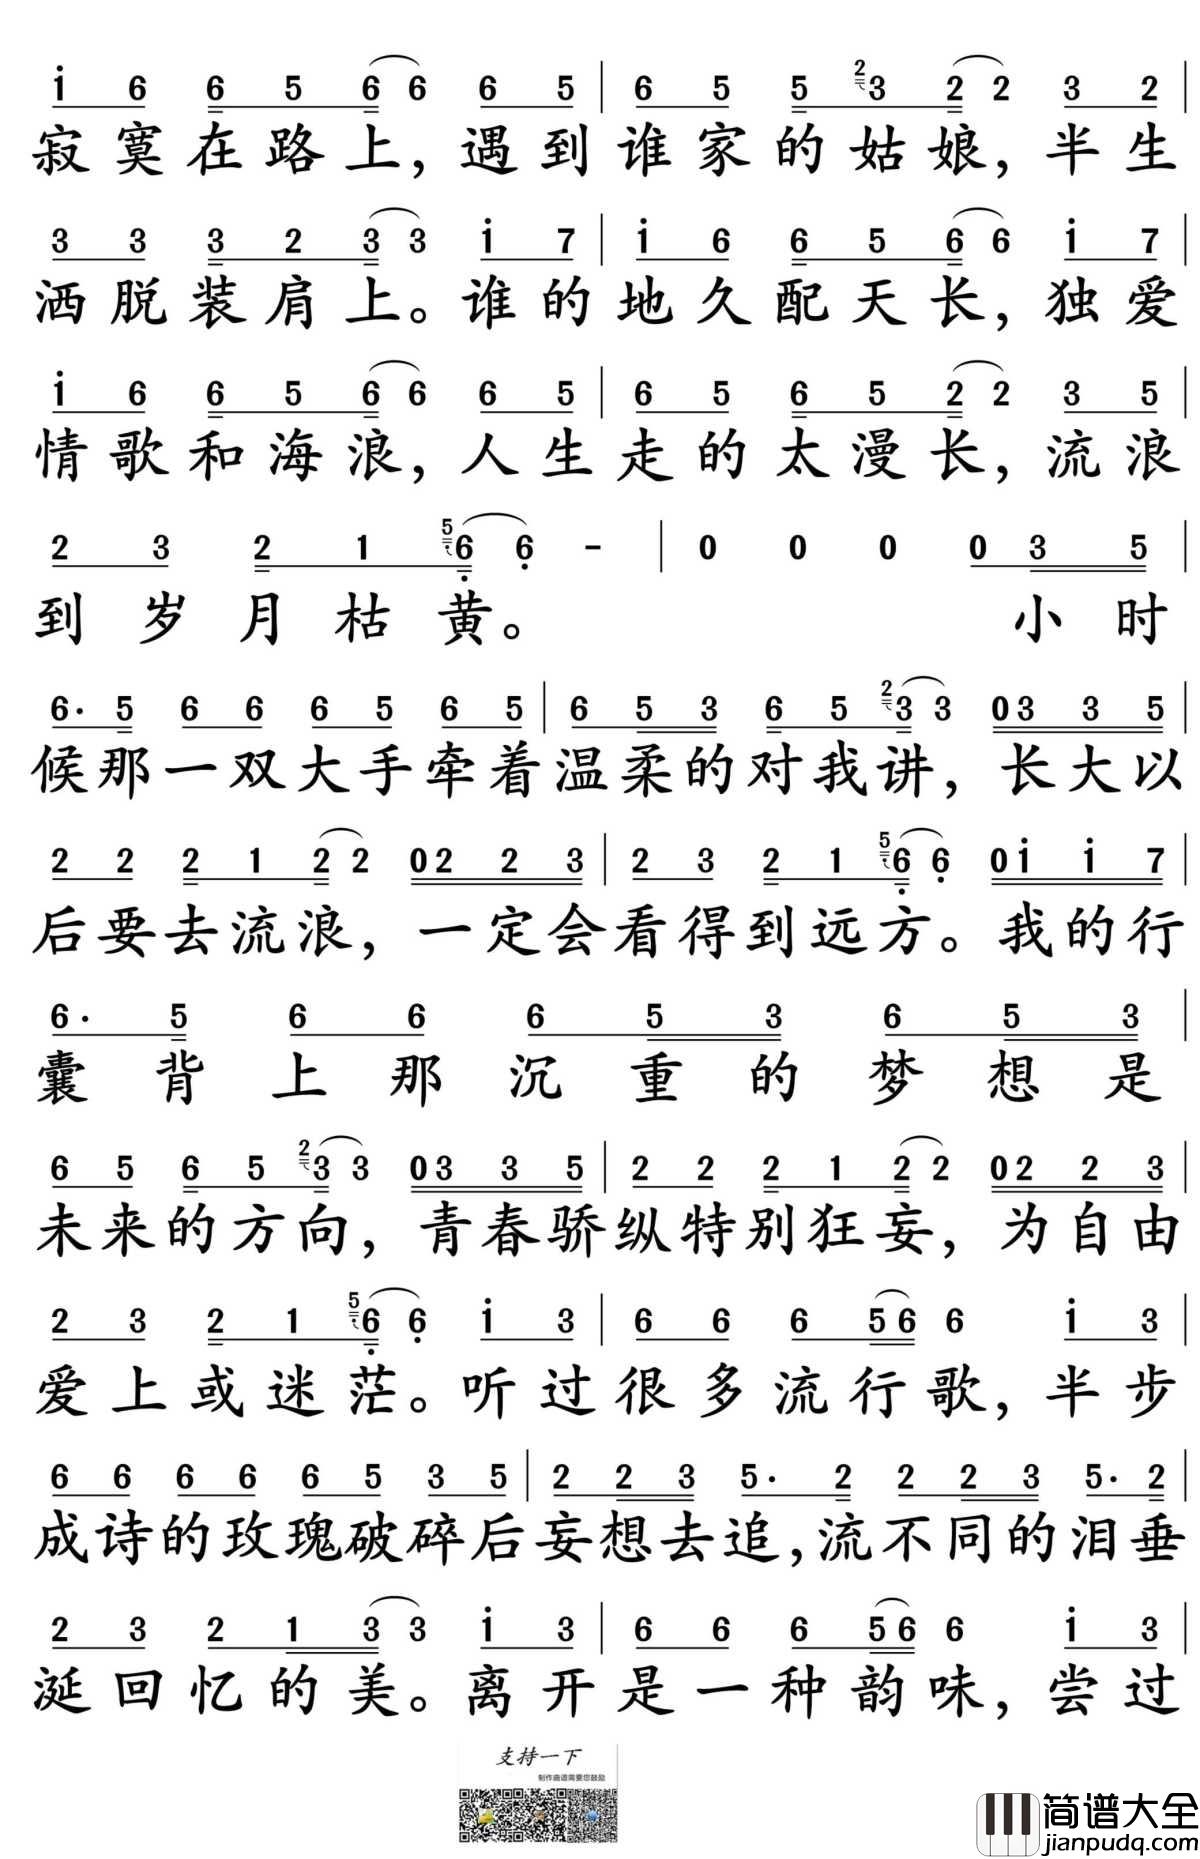 i 6 6 5 6 6 6 5 | 6 5 5 2 3 2 2 3 2 |
寂寞在路上，遇到谁家的姑娘，半生
3 3 3 2 3 3 i 7 | i 6 6 5 6 6 i 7 |
洒脱装肩上。谁的地久配天长，独爱
i 6 6 5 6 6 6 5 | 6 5 6 5 2 2 3 5 |
情歌和海浪，人生走的太漫长，流浪
2 3 2 1 5 6 6 - | 0 0 0 0 3 5 |
到岁月枯黄。 小时
6· 5 6 6 6 5 6 5 | 6 5 3 6 5 2 3 3 03 3 5 |
候那一双大手牵着温柔的对我讲，长大以
2 2 2 1 2 2 02 2 3 | 2 3 2 1 5 6 6 0i i 7 |
后要去流浪，一定会看得到远方。我的行
6· 5 6 6 6 5 3 6 5 3 |
囊背上那沉重的梦想是
6 5 6 5 2 3 3 03 3 5 | 2 2 2 1 2 2 02 2 3 |
未来的方向，青春骄纵特别狂妄，为自由
2 3 2 1 5 6 6 i 3 | 6 6 6 56 6 i 3 |
爱上或迷茫。听过很多流行歌，半步
6 6 6 6 6 5 3 5 | 2 2 3 5· 2 2 2 3 5· 2 |
成诗的玫瑰破碎后妄想去追，流不同的泪垂
2 3 2 1 3 3 i 3 | 6 6 6 56 6 i 3 |
涎回忆的美。离开是一种韵味，尝过
支持一下
制作曲谱需要您鼓励
简谱大全
jianpudq.com